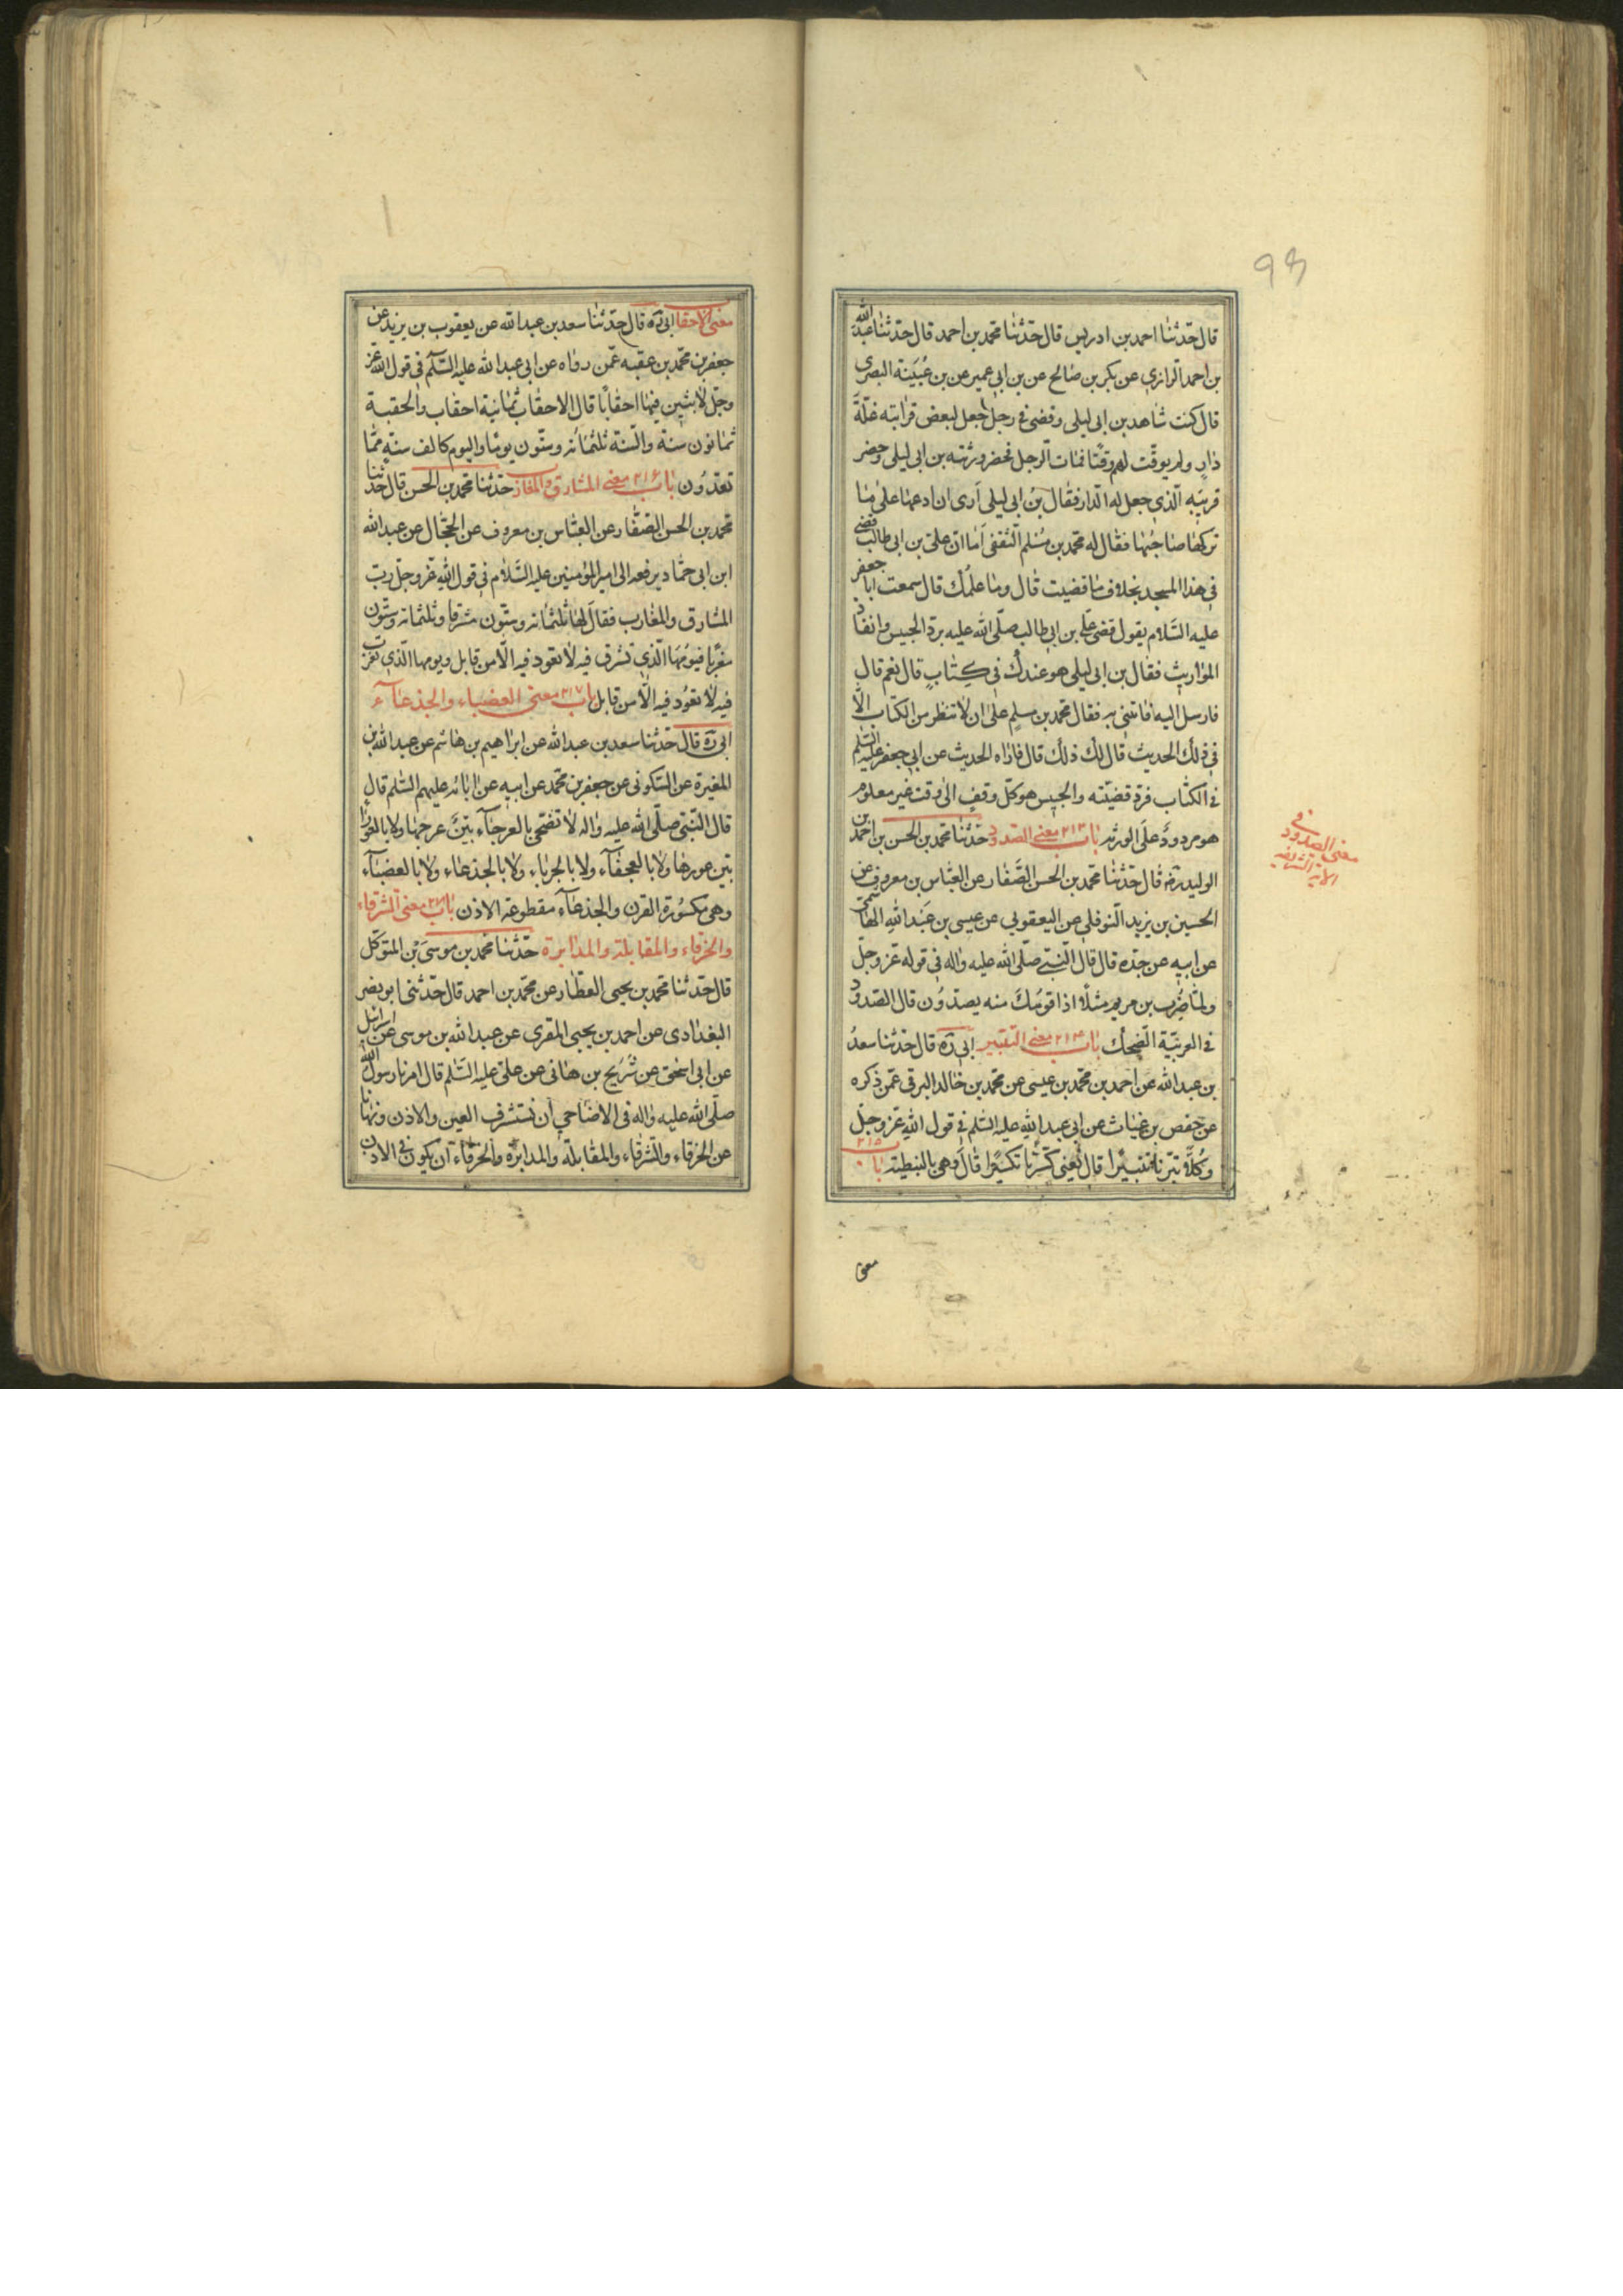 قال حدّثنا احمد بن ادريس قال حدّثنا محمد بن احمد قال حدّثنا عبد الله
بن احمد الرازي عن بكر بن صالح عن بن ابي عمير عن بن عيينة البصرى
قال كنت شاهد بن ابى ليلى وقضى فى رجل جعل لبعض قرابته غلّة
دار ولم يوقّت لهم وقتا فمات الرجل فحضر ورثته بن ابى ليلى وحضر
قريبه الّذي جعل له الدار فقال بن ابى ليلى أرى ان ادعها على ما
تركها صاحبها فقال له محمد بن مسلم الثقفى أما انّ علىّ بن ابى طالب قضى
فى هذا المسجد بخلاف ما قضيت قال وما علمك قال سمعت ابا جعفر
عليه السّلام يقول قضى علي بن ابى طالب صلّى الله عليه بردّ الحبيس وانفاذ
المواريث فقال بن ابى ليلى هو عندك فى كتاب قال نعم قال
فارسل اليه فاتنى به فقال محمد بن مسلم على ان لا تنظر من الكتاب الّا
فى ذلك الحديث قال لك ذلك قال فاراه الحديث عن ابى جعفر عليه السّلم
فى الكتاب فردّ قضيّته والحبيس هو كلّ وقف الى وقت غير معلوم
هو مردود على الورثه باب ٢١٣ معنى الصدود حدّثنا محمد بن الحسن بن احمد بن
الوليد ره قال حدّثنا محمد بن الحسن الصّفار عن العبّاس بن معروف عن
الحسين بن يزيد النوفلى عن اليعقوبي عن عيسى بن عبد الله الهاشمى
عن ابيه عن جدّه قال قال النّبى صلّى الله عليه واله فى قوله عز وجل
ولمّا ضرب بن مريم مثلًا اذا قومك منه يصدّون قال الصدود
فى العربيّة الضحك باب ٢١٤ معنى التتبير ابى ره قال حدّثنا سعد
بن عبد الله عن احمد بن محمد بن عيسى عن محمد بن خالد البرقى عمّن ذكره
عن حفص بن غياث عن ابى عبد الله عليه السّلم فى قول الله عز وجل
وكلّا تبّرنا تتبيرا قال يعنى كسّرنا تكسيرا قال وهى بالنبطية باب ٢١٥
معنى
معنى الصدود فى
الاية الشريفه
معنى الاحقاب ابى ره قال حدّثنا سعد بن عبد الله عن يعقوب بن يزيد عن
جعفر بن محمد بن عقبه عمّن رواه عن ابى عبد الله عليه السّلم فى قول الله عز
وجلّ لابثين فيها احقابًا قال الاحقاب ثمانية احقاب والحقبة
ثمانون سنة والسّنة ثلثمائة وستّون يوما واليوم كالف سنة ممّا
تعدّون باب ٢١٦ معنى المشارق والمغارب حدّثنا محمد بن الحسن قال حدّثنا
محمد بن الحسن الصّفار عن العبّاس بن معروف عن الحجّال عن عبد الله
ابن ابى حمّاد يرفعه الى امير المؤمنين عليه السّلام فى قول الله عزّ وجل ربّ
المشارق والمغارب فقال لها ثلثمائة وستّون مشرقا وثلثمائة وستّون
مغربا فيومها الّذي تشرق فيه لا تعود فيه الّا من قابل ويومها الّذي تغرب
فيه لا تعود فيه الّا من قابل باب ٢١٧ معنى العضباء والجذعاء
ابى ره قال حدّثنا سعد بن عبد الله عن ابراهيم بن هاشم عن عبد الله بن
المغيرة عن السّكونى عن جعفر بن محمد عن ابيه عن ابائه عليهم السّلم قال
قال النّبى صلّى الله عليه واله لا تضحّى بالعرجاء بيّن عرجها ولا بالعوراء
بيّن عورها ولا بالعجفاء ولا بالجرباء ولا بالجذعاء ولا بالعضباء
وهى مكسورة القرن والجذعاء مقطوعة الاذن باب معنى الشرقاء
والخرقاء والمقابلة والمدابرة حدّثنا محمد بن موسى بن المتوكّل
قال حدّثنا محمد بن يحيى العطّار عن محمّد بن احمد قال حدّثنى ابو نصر
البغدادى عن احمد بن يحيى المقرى عن عبد الله بن موسى عن اسرائيل
عن ابى اسحق عن شريح بن هانى عن علىّ عليه السّلم قال امرنا رسول الله
صلّى الله عليه واله فى الاضاحي أن نستشرف العين والاذن ونهانا
عن الخرقاء والشرقاء والمقابلة والمدابرة والخرقاء أن يكون فى الاذن